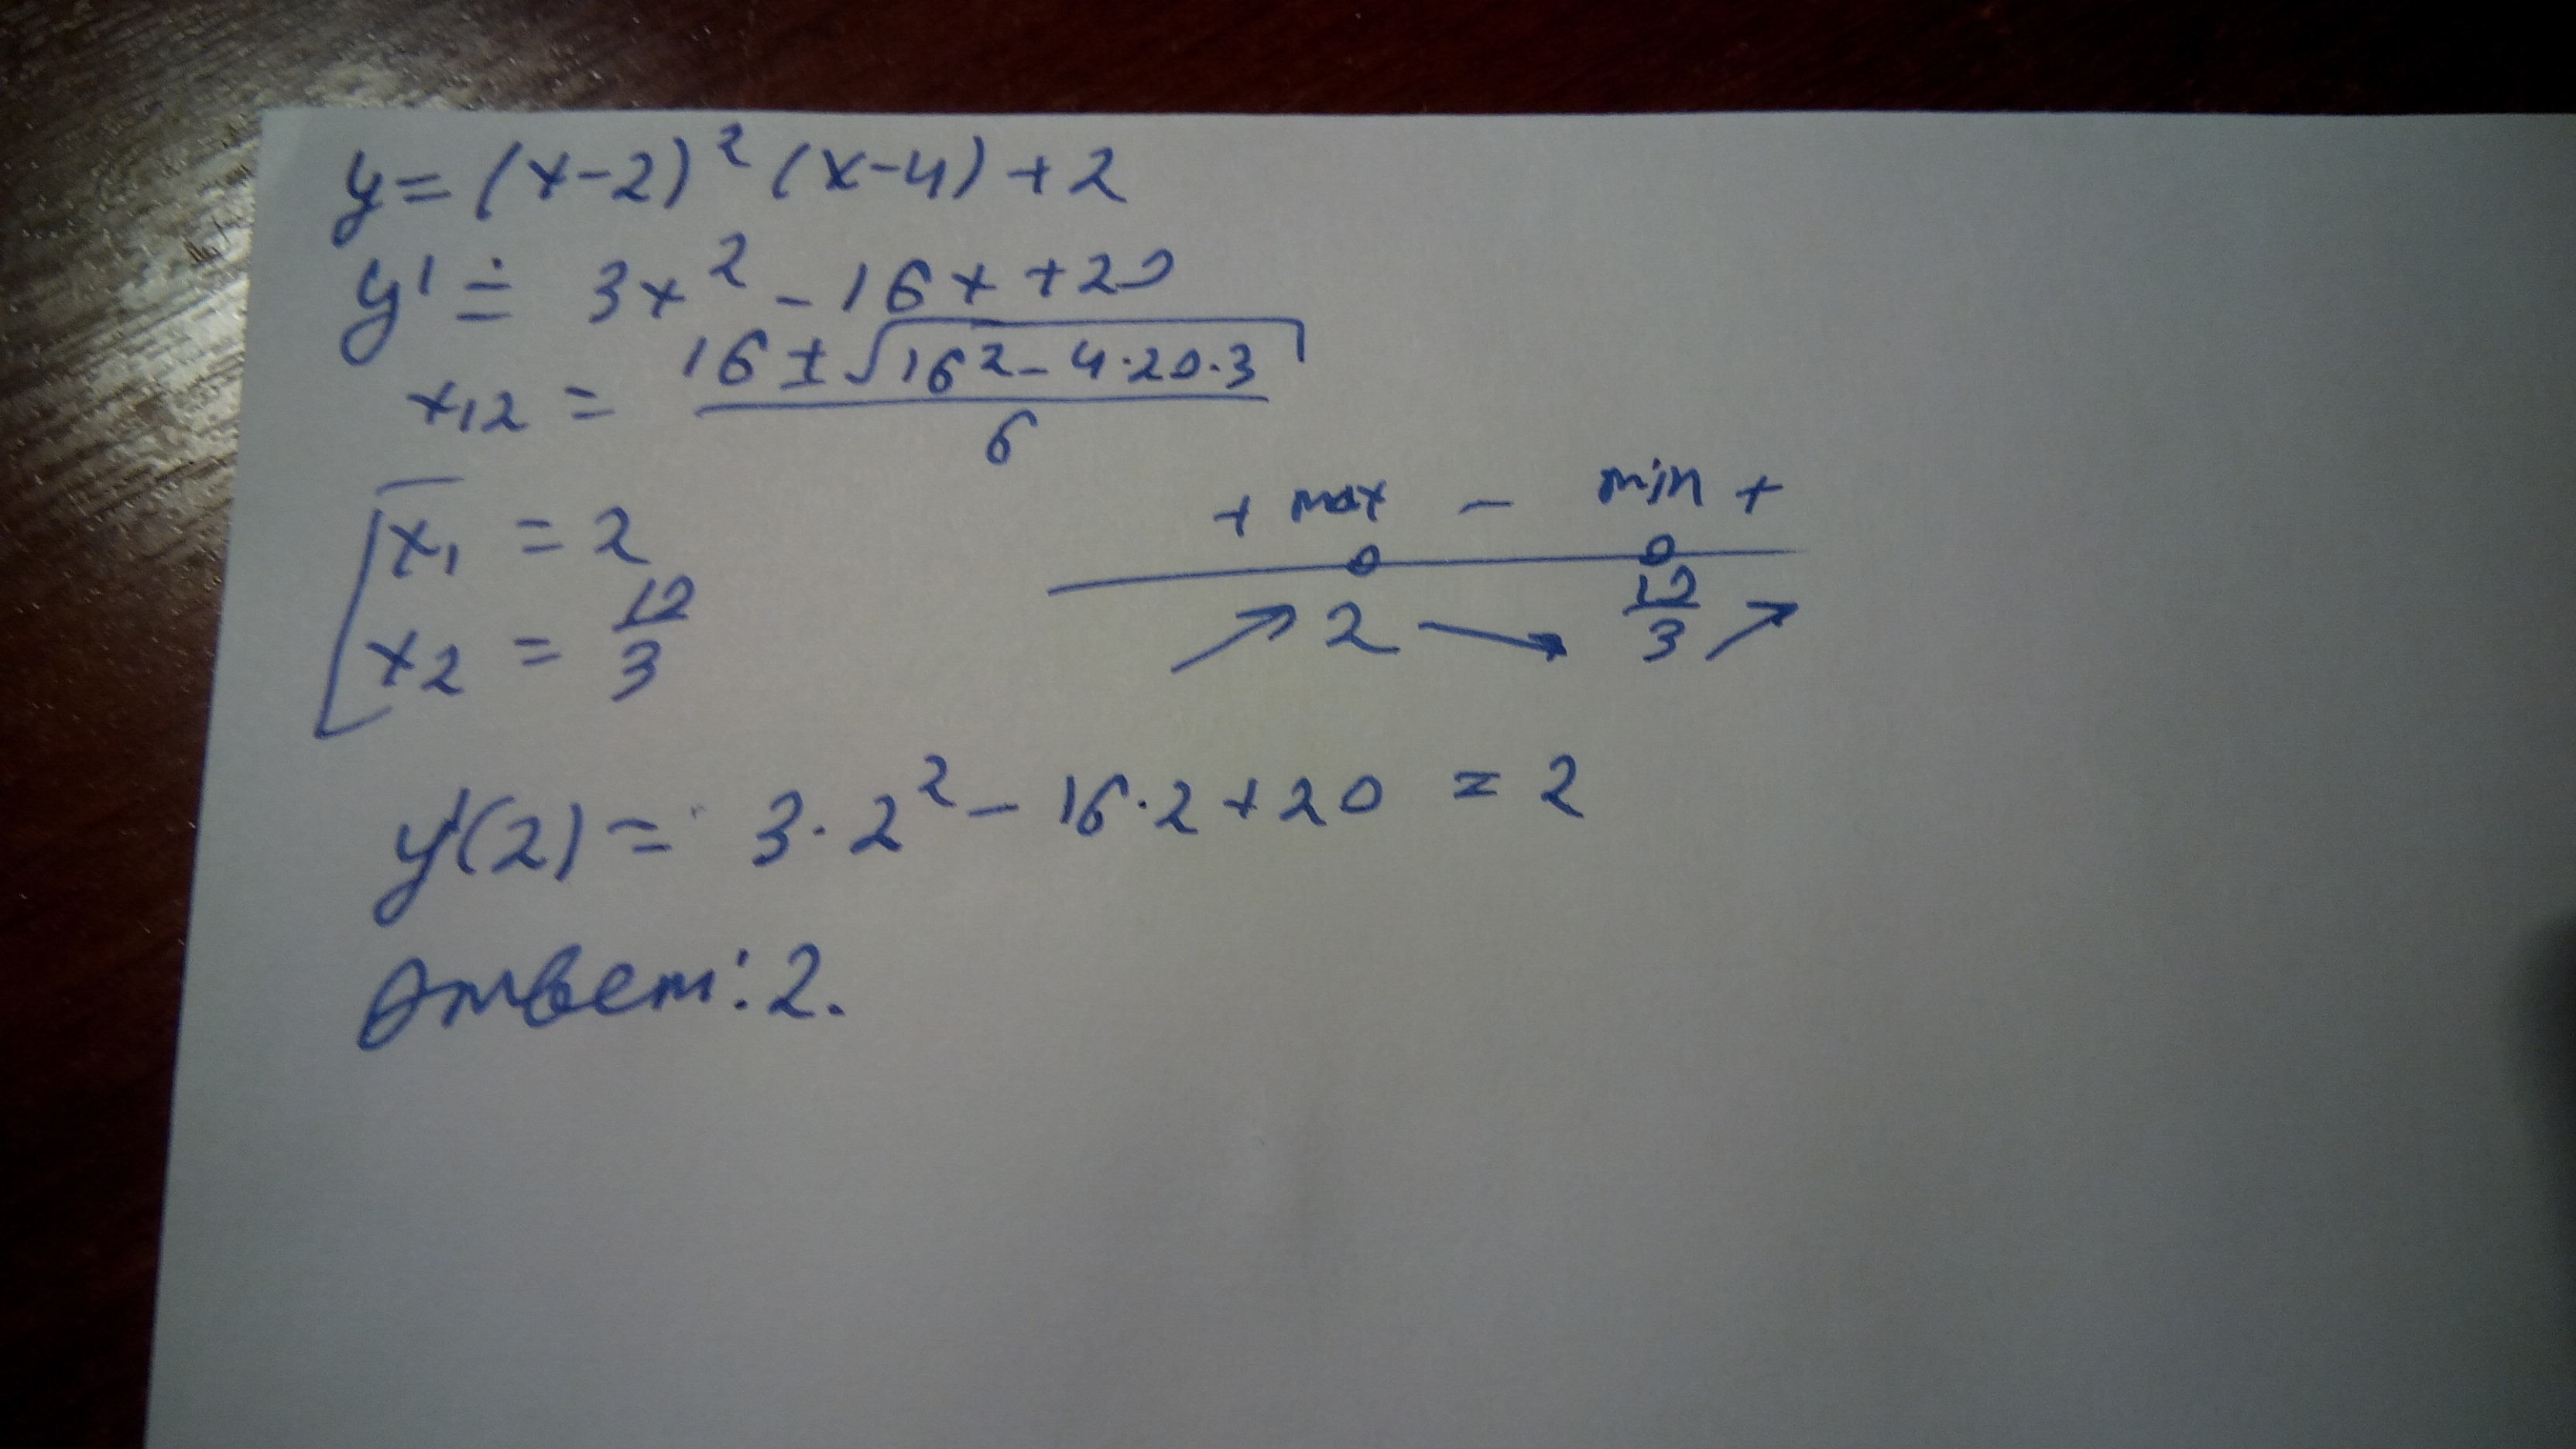 y = (x-2)² (x-4) + 2
y' = 3x² - 16x + 20
x₁₂ = (16 ± √(16² - 4·20·3)) / 6
x₁ = 2
x₂ = 12/3
+ max - min +
2 12/3
y'(2) = 3·2² - 16·2 + 20 = 2
Ответ: 2.